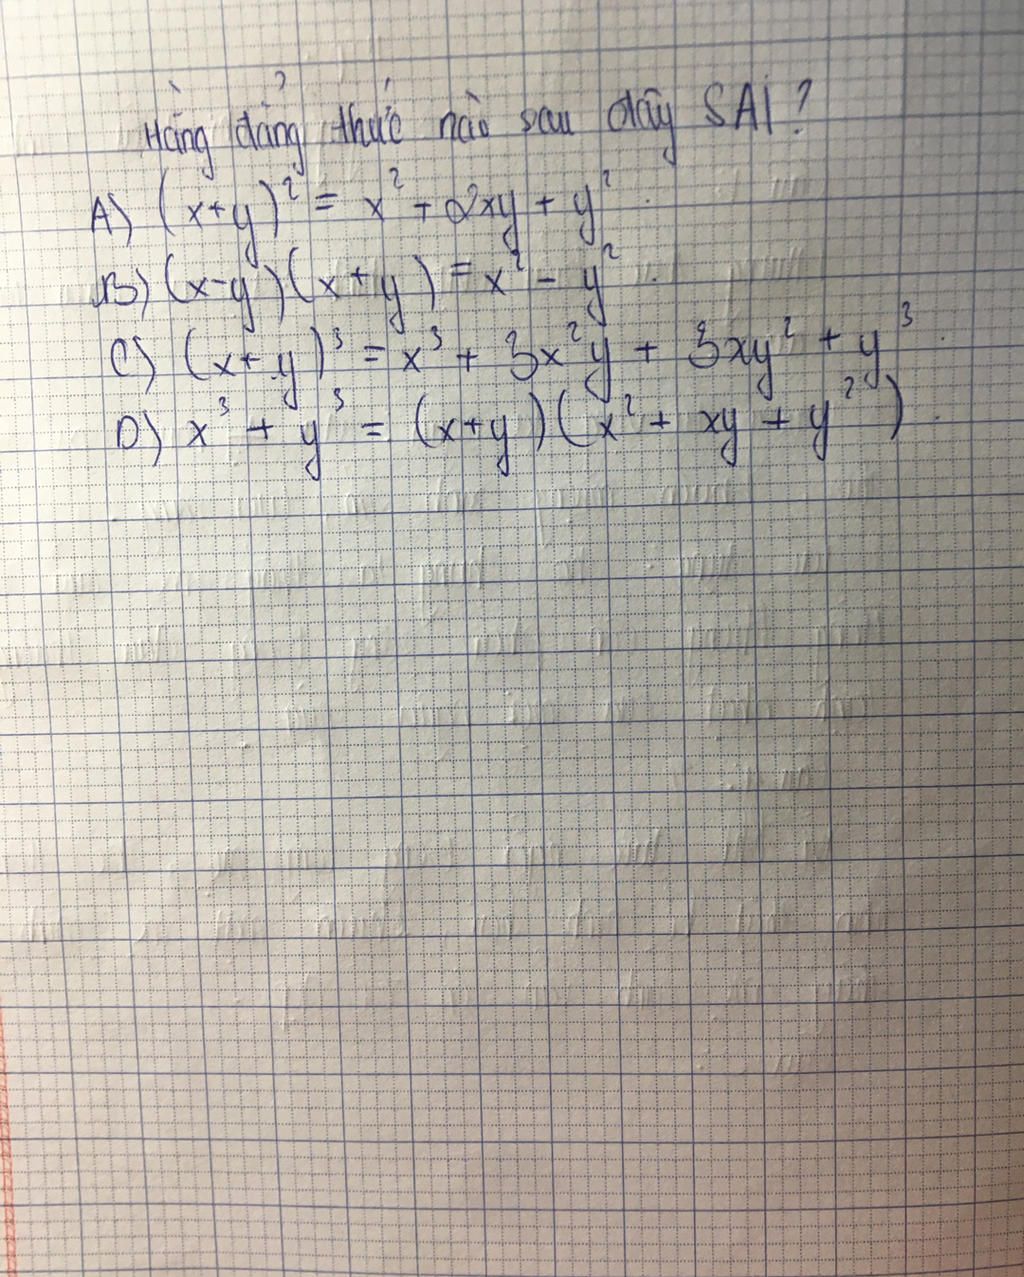 Hằng đẳng thức nào sau đây SAI?
A) (x+y)² = x² + 2xy + y².
B) (x-y)(x+y) = x² - y².
C) (x+y)³ = x³ + 3x²y + 3xy² + y³.
D) x³ + y³ = (x+y)(x² + xy + y²).